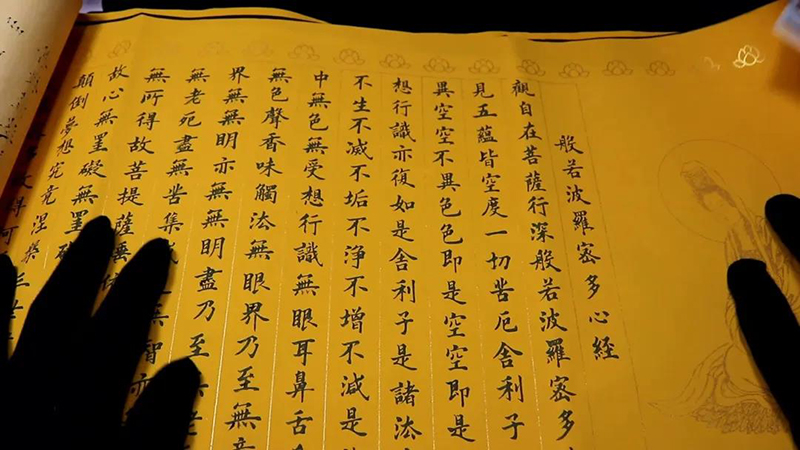 般若波羅密多心經
觀自在菩薩行深般若波羅密多
見五蘊皆空度一切苦厄舍利子
異空空不異色色即是空空即是
想行識亦復如是舍利子是諸法
不生不滅不垢不淨不增不減是
中無色無受想行識無眼耳鼻舌
無色聲香味觸法無眼界乃至無
界無無明亦無無明盡乃至
無老死盡無苦集無智亦
無所得故菩提薩
故心無罣礙無罣礙
顛倒夢想究竟涅槃